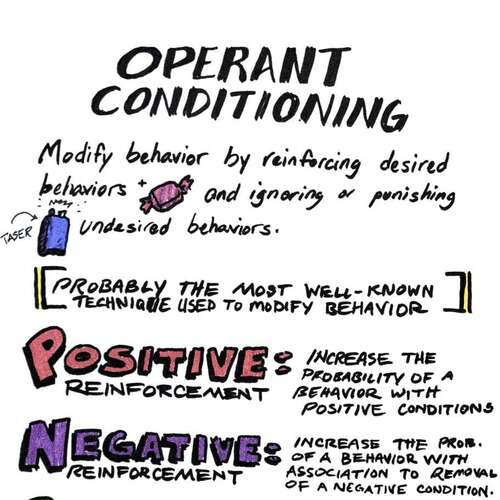 OPERANT
CONDITIONING
Modify behavior by reinforcing desired
behaviors + and ignoring or punishing
TASER undesired behaviors.
PROBABLY THE MOST WELL-KNOWN
TECHNIQUE USED TO MODIFY BEHAVIOR
POSITIVE: INCREASE THE
REINFORCEMENT PROBABILITY OF A
BEHAVIOR WITH
POSITIVE CONDITIONS
NEGATIVE: INCREASE THE PROB.
REINFORCEMENT OF A BEHAVIOR WITH
ASSOCIATION TO REMOVAL
OF A NEGATIVE CONDITION.